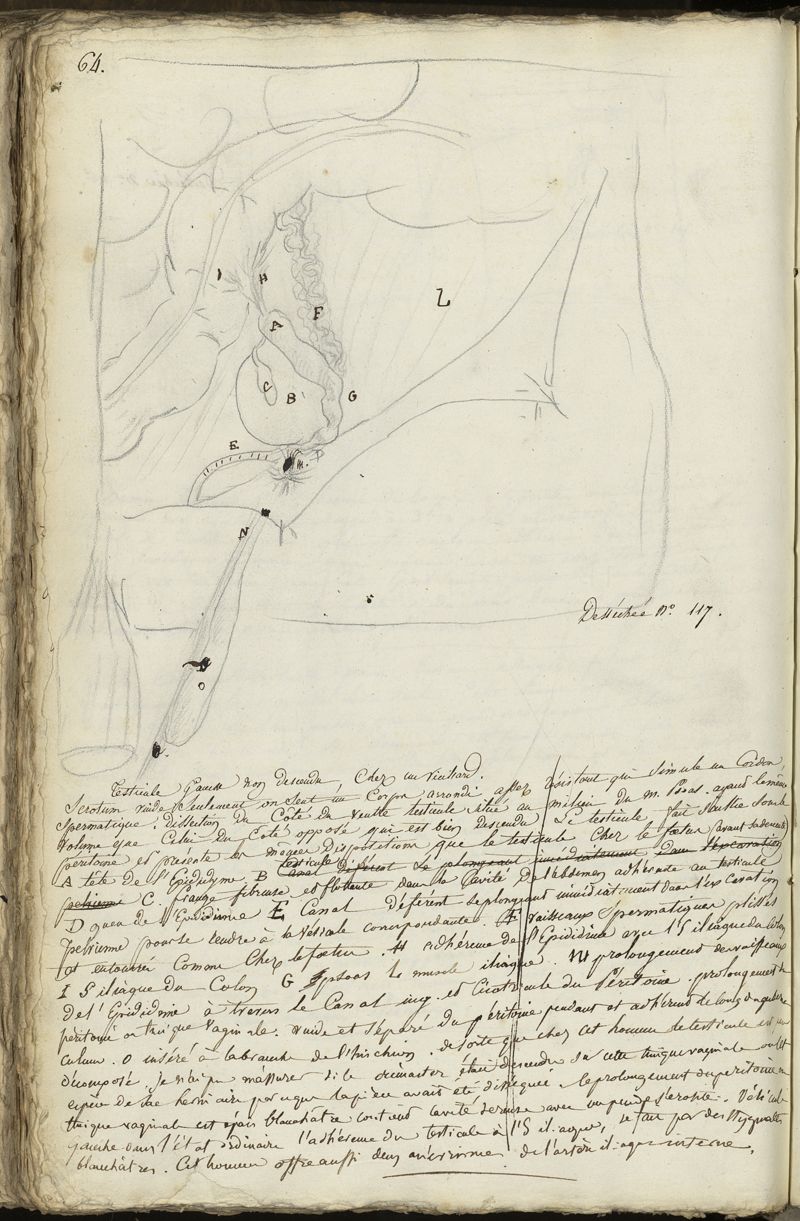 64.
I H F L
A
C B G
E D
N
Desséchée N.o 117.
O
Testicule Gauche non descendu, chez un vieillard.
Scrotum vuide seulement on sent un Corps arrondi assez épais tout qui simule un Cordon
Spermatique. Dissection du Coté du Ventre testicule situé au milieu du m. Psoas. ayant le même
volume que Celui du Coté opposé qui est bien descendu. Le testicule fait saillie sous le
peritoine et presente les mêmes dispositions que le testicule chez le foetus avant sa descente
A tête de l'Epididyme B testicule Canal déférent se plongeant immédiatement dans l'excavation
pelvienne C. frange fibreuse et flottante dans la Cavité de l'abdomen adhérente au testicule
D queue de l'Epididime E Canal déferent se plongeant immédiatement dans l'excavation
pelvienne pour se rendre à la vesicule correspondante. F vaisseaux Spermatiques plissés
et entourrés Comme Chez le foetus. H adhérence de l'Epididime avec l'S iliaque du Colon
I S iliaque du Colon G psoas L muscle iliaque. M prolongement de vaisseaux
de l'Epididime à travers le Canal ing. et Cicatricule du Péritoine. prolongement du
péritoine ou tunique vaginale. vuide et séparé du péritoine pendant et adhérent le long du guber-
culum. O inséré à la branche de l'hischion. de sorte que chez cet homme le testicule est
décomposé. Je n'ai pu m'assurer si le crémaster était descendu sur cette tunique vaginale ou
espèce de sac herniaire parceque la pièce avait été disséquée. le prolongement du peritoine
tunique vaginale est épais blanchâtre contient cavité sereuse avec un peu de serosité. Vésicule
gauche dans l'état ordinaire l'adhérence du testicule à l'S iliaque, se fait par des
blanchâtres. Cet homme offre aussi deux anévrismes de l'artère iliaque interne.